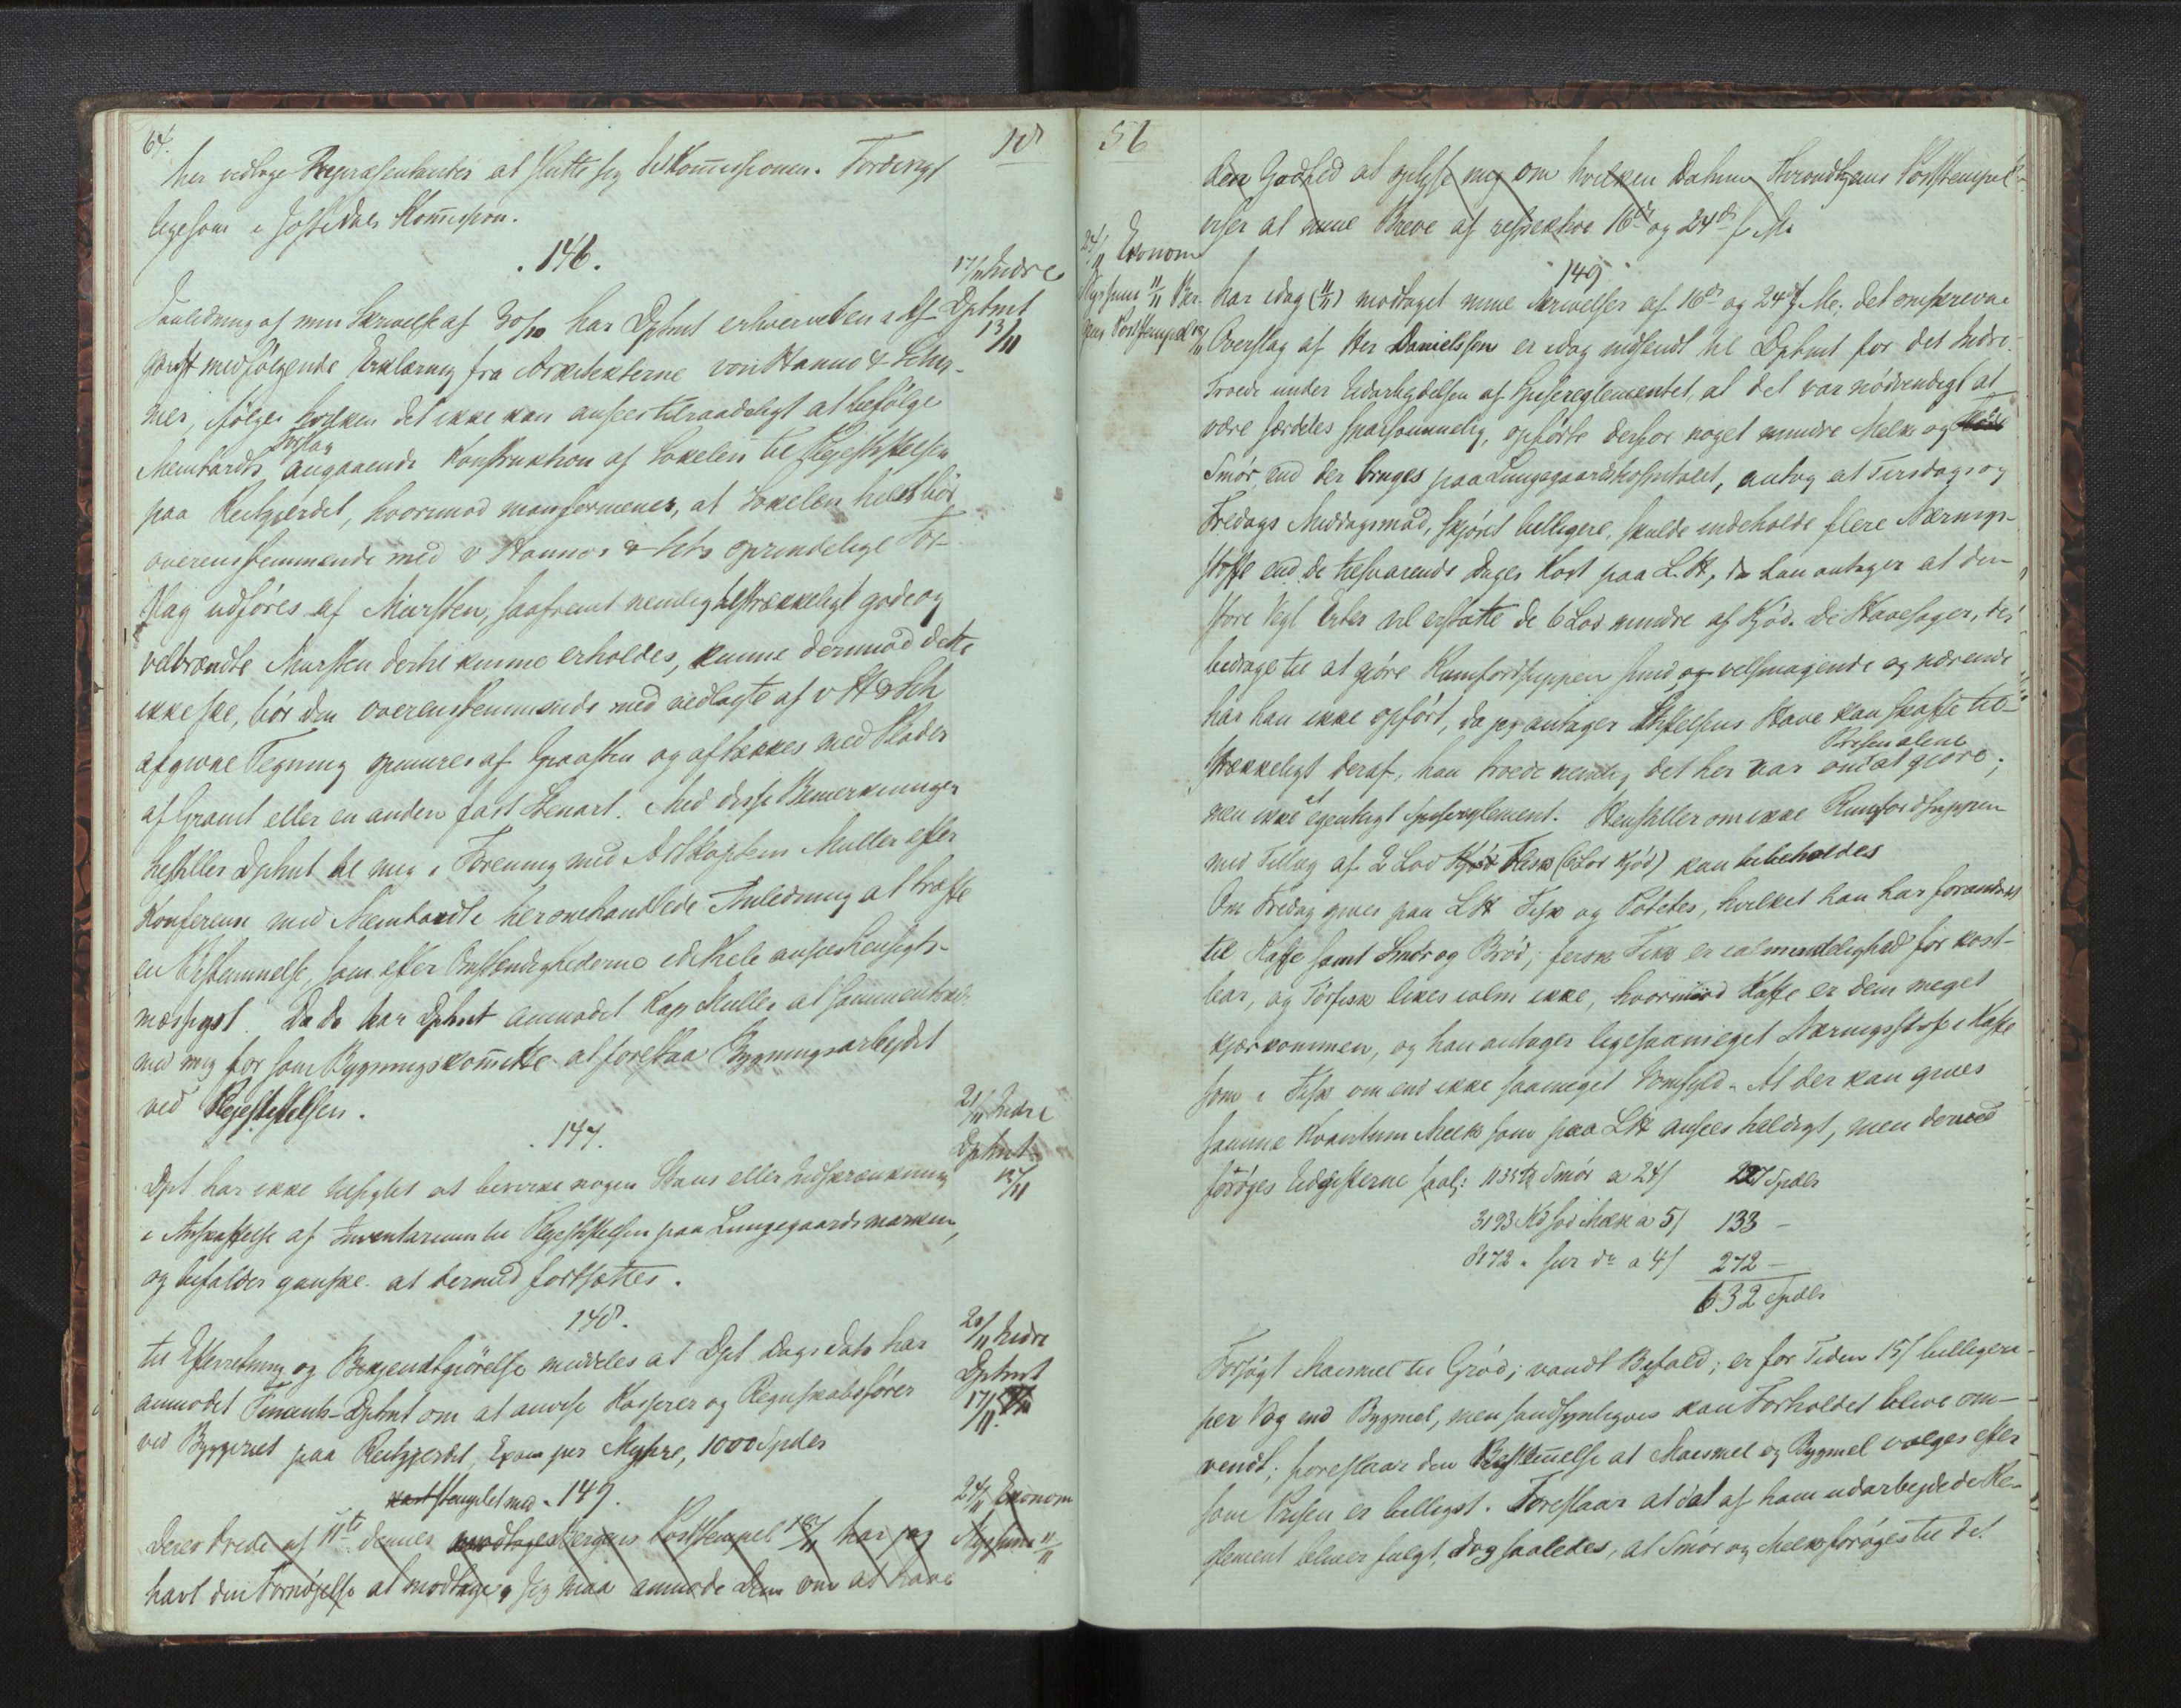 64.
18
her vedtoge Repræsentanter at slutte sig det Kom̅issionen. Fordeligt
ligesom i Jostedals Kom̅ission.
.146.
17/11 Indre
Dptmt
13/11
I Anledning af min Skrivelse af 30/10 har Dptmt erhvervet en i Af-
skrift medfølgende Erklæring fra Arkitekterne von Hanno & Schir-
mer, ifølge hvilken det ikke kan ansees tilraadeligt at befølge
Meinhardts Forslag angaaende Konstruktion af Sokelen til Plejestiftelsen
paa Reitgjerdet, hvorimod man formener, at Sokelen heller bör
overensstemmende med v Hannos & Schs oprindelige For-
slag udföres af Mursten, saafremt nemlig tilstrækkeligt gode og
velbrændte Mursten dertil kunne erholdes, kunne derimod dette
ikke ske, bör den overensstemmende med vedlagte af v H & Sch
afgivne Tegning opmures af Graasten og aftækkes med Plader
af Granit eller en anden fast Stenart. Med disse Bemærkninger
hestiller Dptmt til mig i Forening med Artkaptein Muller efter
Konferense med Meinhardt i heromhandlede Anledning at træffe
en Bestemmelse, som efter Omstændighederne i det Hele ansees hensigts-
mæssigst. D. D. har Dptmt anmodet Kap Muller at sammentræde
med mig for som Bygningskom̅itte at forestaa Bygningsarbejdet
ved Plejestiftelsen.
.147.
21/11 Indre
Dptmt
17/11
Dpt har ikke tilsigtet at bevirke nogen Stans eller Indskrænkning
i Anskaffelse af Inventarium til Plejestiftelsen paa Lungegaardsmarken,
og bifaldes ganske at dermed fortsættes.
148.
20/11 Indre
Dptmt
17/11
til Efterretning og Bekjendtgiörelse meddeles at Dpt Dags Dato har
anmodet Finants-Dptmt om at anvise Kasserer og Regnskabsförer
ved Byggeriet paa Reitgjerdet, Exam jur Myhre, 1000 Spdlr
stemplet med .149.
24/11 Ekonom
11/11
Deres Brede af 11te dennes modtaget Bergens Poststempel 18/11 har jeg
havt den Fornöjelse at modtage. Jeg maa anmode Dem om at have
56
den Godhed at oplyse mig om hvilken Datum Throndhjems Poststempel
viser at mine Breve af respektive 16de og 24de f. M.
149
24/11 Ekonom
11/11 Ber-
gens Poststempel 18/11
har idag (11/11) modtaget mine Skrivelser af 16de og 24de f. M. det omskrevne
Overslag af Her Danielssen er idag indsendt til Dptmt for det Indre.
Troede under Udarbejdelsen af Spisereglementet, at det var nödvendigt at
være særdeles sparsommelig, opförte derfor noget mindre Melk og
Smör, end der bruges paa Lungegaardshospitalet, antog at Tirsdags og
Fredags Middagsmad, skjönt billigere, skulde indeholde flere Nærings-
stoffe end de tilsvarende Dages Kost paa L.H, da han antager at den
store Vegt Erter vil erstatte de 6 Lod mindre af Kjöd. De Havesager, der
bedrage til at gjöre Rumfordsuppen sund og velsmagende og nærende
har han ikke opfört, da jeg antager Stiftelsens Have kan skaffe til-
strækkeligt deraf, han troede nemlig det her var Prisen alene om at gjöre;
men ikke et egentligt Spisereglement. Henstiller om ikke Rumfordsuppen
med Tillæg af 2 Lod Kjöd Flesk (6 Lod Kjöd) kan bibeholdes
Om Fredag gives paa L H Fisk og Potetes, hvilket han har forandret
til Kaffe samt Smör og Bröd; fersk Fisk er i almindelighed for kost-
bar, og Törfisk likes i alm ikke, hvorimod Kaffe er dem meget
kjærkommen, og han antager ligesaameget Næringsstof i Kaffe
som i Fisk om end ikke saameget Vomfyld. At der kan gives
samme Kvantum Melk som paa LH ansees heldigt, men derved
foröges Udgifterne saal: 1135 ℔ Smör a 24/ 227 Spdlr
3193 Kd söd Melk a 5/ 133 –
8172 " sur do a 4/ 272 –
632 Spdlr
Forsögt Maismel til Gröd; vandt Bifald; er for Tiden 15/ billigere
per Vog end Bygmel, men sandsynligvis kan Forholdet blive om-
vendt; foreslaar den Bestem̅else at Maismel og Bygmel vælges efter
som Prisen er billigst. Foreslaar at det af ham udarbejdede Re-
glement bliver fulgt, dog saaledes, at Smör og Melk foröges til det